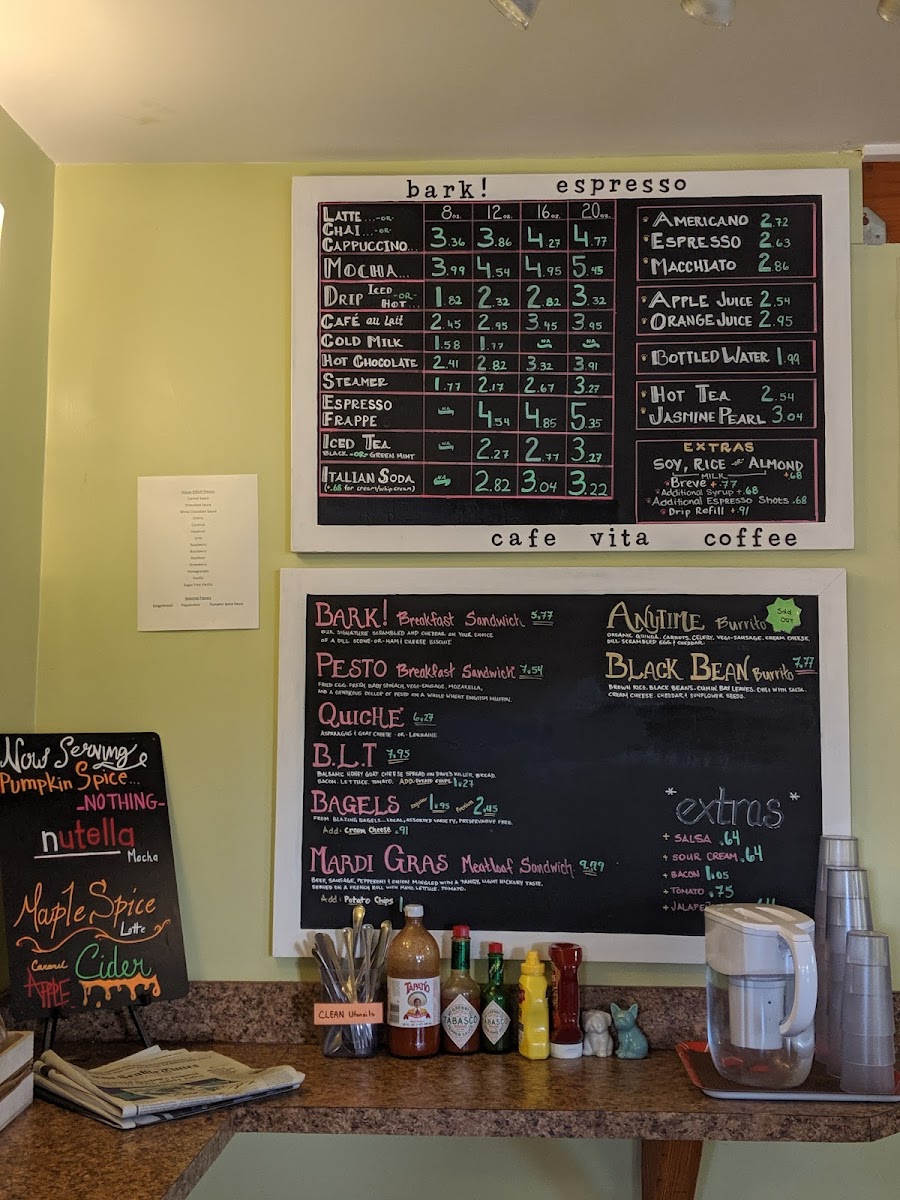 bark! espresso
8oz. 12oz. 16oz. 20oz.
LATTE...-OR-
CHAI...-OR-
CAPPUCCINO... 3.36 3.86 4.27 4.77
MOCHA... 3.99 4.54 4.95 5.45
DRIP ICED -OR- HOT... 1.82 2.32 2.82 3.32
CAFÉ au lait 2.45 2.95 3.45 3.95
COLD MILK 1.58 1.77 NA NA
HOT CHOCOLATE 2.41 2.82 3.32 3.91
STEAMER 1.77 2.17 2.67 3.27
ESPRESSO
FRAPPE NA 4.54 4.85 5.35
ICED TEA
BLACK -OR- GREEN MINT NA 2.27 2.77 3.27
ITALIAN SODA
(+.68 for cream/whip cream) NA 2.82 3.04 3.22
AMERICANO 2.72
ESPRESSO 2.63
MACCHIATO 2.86
APPLE JUICE 2.54
ORANGE JUICE 2.95
BOTTLED WATER 1.99
HOT TEA 2.54
JASMINE PEARL 3.04
EXTRAS
SOY, RICE OR ALMOND
MILK +.68
Breve +.77
Additional Syrup +.68
Additional Espresso Shots .68
Drip Refill +.91
cafe vita coffee
BARK! Breakfast Sandwich 5.77
OUR SIGNATURE SCRAMBLED AND CHEDDAR ON YOUR CHOICE
OF A DILL SCONE-OR-HAM & CHEESE BISCUIT
PESTO Breakfast Sandwich 7.54
FRIED EGG, FRESH BABY SPINACH, VEGI-SAUSAGE, MOZARELLA,
AND A GENEROUS DOLLOP OF PESTO ON A WHOLE WHEAT ENGLISH MUFFIN.
QUICHE 6.27
ASPARAGUS & GOAT CHEESE -OR- LORRAINE
B.L.T 7.95
BALSAMIC HONEY GOAT CHEESE SPREAD ON DAVE'S KILLER BREAD.
BACON. LETTUCE. TOMATO. ADD: POTATO CHIPS 1.27
BAGELS Regular 1.95 Premium 2.45
FROM BLAZING BAGELS...LOCAL, ASSORTED VARIETY, PRESERVATIVE FREE.
Add: Cream Cheese .91
MARDI GRAS Meatloaf Sandwich
BEEF, SAUSAGE, PEPPERONI & ONION MINGLED WITH A TANGY, LIGHT HICKORY TASTE.
SERVED ON A FRENCH ROLL WITH MAYO, LETTUCE, TOMATO.
Add: Potato Chips 1
ANYTIME Burrito
Sold
OUT
ORGANIC QUINOA, CARROTS, CELERY, VEGI-SAUSAGE, CREAM CHEESE,
DILL SCRAMBLED EGG & CHEDDAR.
BLACK BEAN Burrito 7.77
BROWN RICE, BLACK BEANS, CUMIN BAY LEAVES, CHILI WITH SALSA,
CREAM CHEESE, CHEDDAR & SUNFLOWER SEEDS.
*extras*
+ SALSA .64
+ SOUR CREAM .64
+ BACON 1.05
+ TOMATO .75
+ JALAPEÑ
Caramel Sauce
Chocolate Sauce
White Chocolate Sauce
Cherry
Coconut
Hazelnut
Raspberry
Strawberry
Vanilla
Sugar Free Vanilla
Seasonal Flavors
Gingerbread Peppermint Pumpkin Spice Sauce
NOW Serving
Pumpkin Spice...
-NOTHING-
nutella
Mocha
Maple Spice
Latte
Caramel
APPLE Cider
CLEAN Utensils
TAPATIO
TABASCO
TABASCO